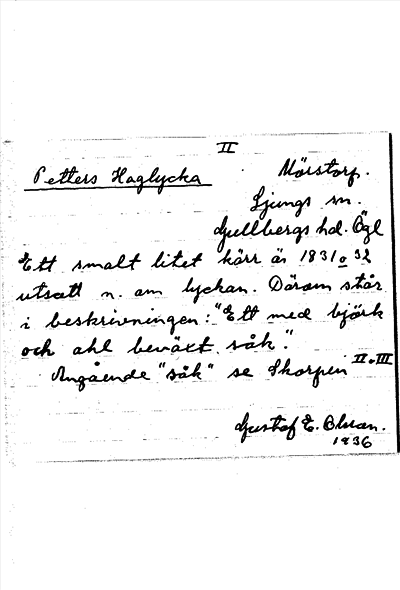 II
Petters Haglycka
Mörstorp.
Ljungs sn.
Gullbergs hd. Ögl
Ett smalt litet kärr är 1831 o 32
utsatt n. om lyckan. Därom står
i beskrivningen: "Ett med björk
och ahl beväxt såk".
Angående "såk" se Skorpen II o III
Gustaf E.
1936